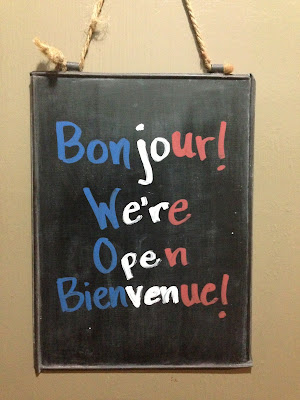 Bonjour!
We're
Open
Bienvenue!